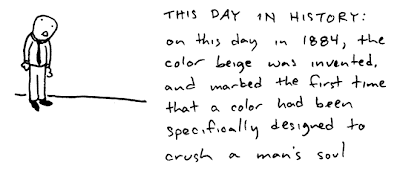 THIS DAY IN HISTORY:
on this day in 1884, the
color beige was invented,
and marked the first time
that a color had been
specifically designed to
crush a man's soul